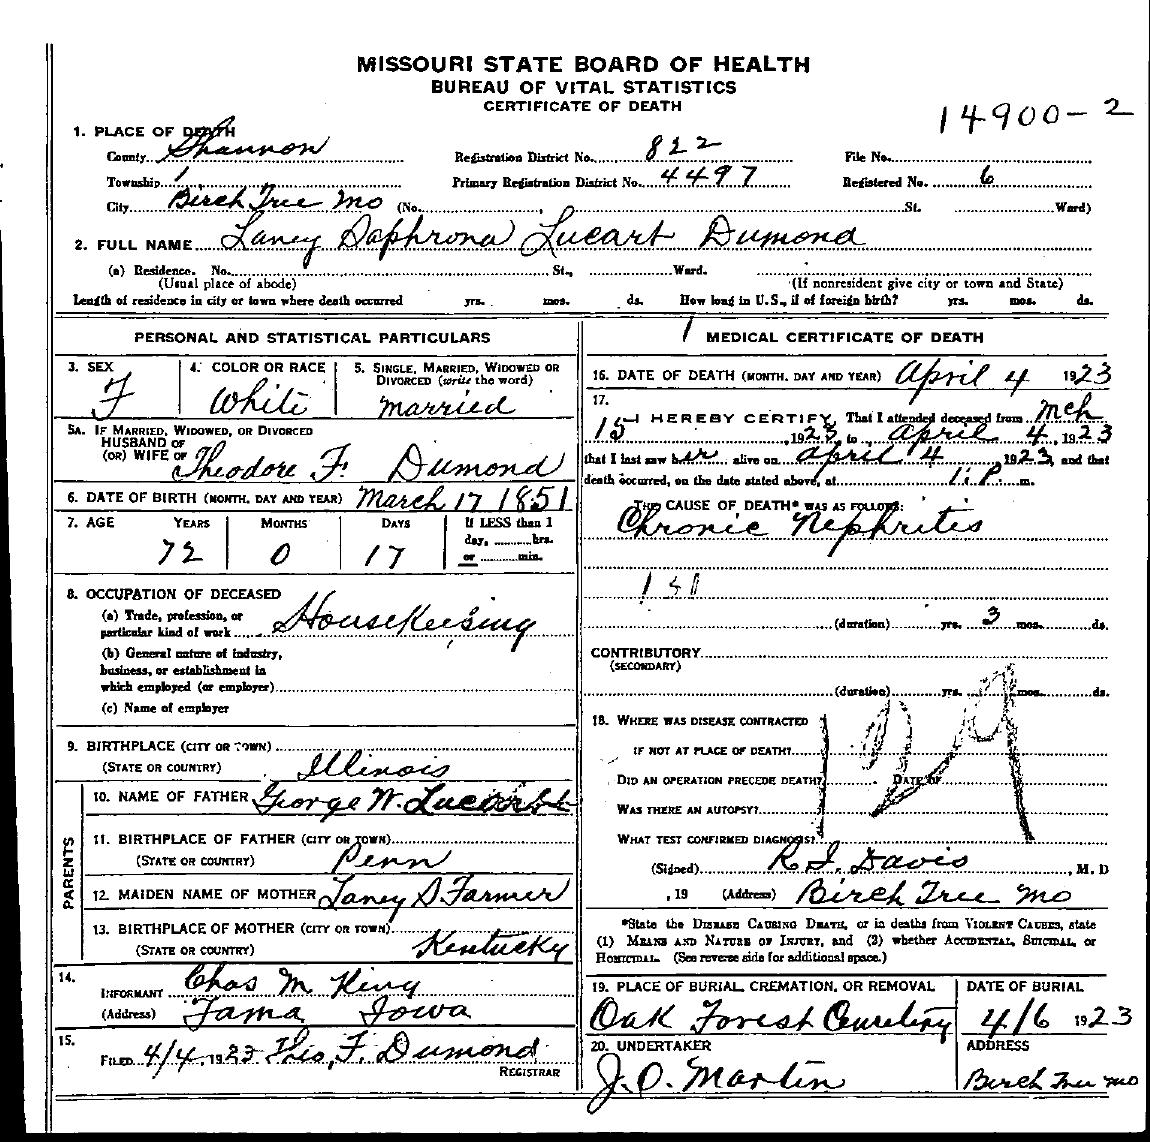 MISSOURI STATE BOARD OF HEALTH
BUREAU OF VITAL STATISTICS
CERTIFICATE OF DEATH
14900-2
1. PLACE OF DEATH
County Shannon Registration District No. 822 File No.
Township 1 Primary Registration District No. 4497 Registered No. 6
City Birch Tree Mo (No. St. Ward)
2. FULL NAME Laney Saphrona Lucart Dumond
(a) Residence. No. St., Ward.
(Usual place of abode) (If nonresident give city or town and State)
Length of residence in city or town where death occurred yrs. mos. ds. How long in U.S., if of foreign birth? yrs. mos. ds.
PERSONAL AND STATISTICAL PARTICULARS
3. SEX 4. COLOR OR RACE 5. SINGLE, MARRIED, WIDOWED OR
DIVORCED (write the word)
F White Married
5A. IF MARRIED, WIDOWED, OR DIVORCED
HUSBAND OF
(OR) WIFE OF Theodore F. Dumond
6. DATE OF BIRTH (MONTH, DAY AND YEAR) March 17 1851
7. AGE YEARS MONTHS DAYS If LESS than 1
day, hrs.
or min.
72 0 17
8. OCCUPATION OF DECEASED
(a) Trade, profession, or
particular kind of work Housekeeping
(b) General nature of industry,
business, or establishment in
which employed (or employer)
(c) Name of employer
9. BIRTHPLACE (CITY OR TOWN)
(STATE OR COUNTRY) Illinois
PARENTS
10. NAME OF FATHER George W. Lucart
11. BIRTHPLACE OF FATHER (CITY OR TOWN)
(STATE OR COUNTRY) Penn
12. MAIDEN NAME OF MOTHER Laney S. Farmer
13. BIRTHPLACE OF MOTHER (CITY OR TOWN)
(STATE OR COUNTRY) Kentucky
14.
INFORMANT Chas M King
(Address) Tama Iowa
15.
FILED 4/4, 1923 Theo. F. Dumond
REGISTRAR
1 MEDICAL CERTIFICATE OF DEATH
16. DATE OF DEATH (MONTH, DAY AND YEAR) April 4 1923
17.
I HEREBY CERTIFY, That I attended deceased from Mch
15, 1923 to April 4, 1923
that I last saw her alive on April 4 1923, and that
death occurred, on the date stated above, at 1. P. m.
THE CAUSE OF DEATH* WAS AS FOLLOWS:
Chronic Nephritis
131
(duration) yrs. 3 mos. ds.
CONTRIBUTORY
(SECONDARY)
(duration) yrs. mos. ds.
18. WHERE WAS DISEASE CONTRACTED
IF NOT AT PLACE OF DEATH?
DID AN OPERATION PRECEDE DEATH? DATE OF
WAS THERE AN AUTOPSY?
WHAT TEST CONFIRMED DIAGNOSIS?
(Signed) R. S. Davis, M. D
, 19 (Address) Birch Tree Mo
*State the DISEASE CAUSING DEATH, or in deaths from VIOLENT CAUSES, state
(1) MEANS AND NATURE OF INJURY, and (2) whether ACCIDENTAL, SUICIDAL, or
HOMICIDAL. (See reverse side for additional space.)
19. PLACE OF BURIAL, CREMATION, OR REMOVAL DATE OF BURIAL
Oak Forest Cemetery 4/6 1923
20. UNDERTAKER ADDRESS
J. O. Martin Birch Tree Mo